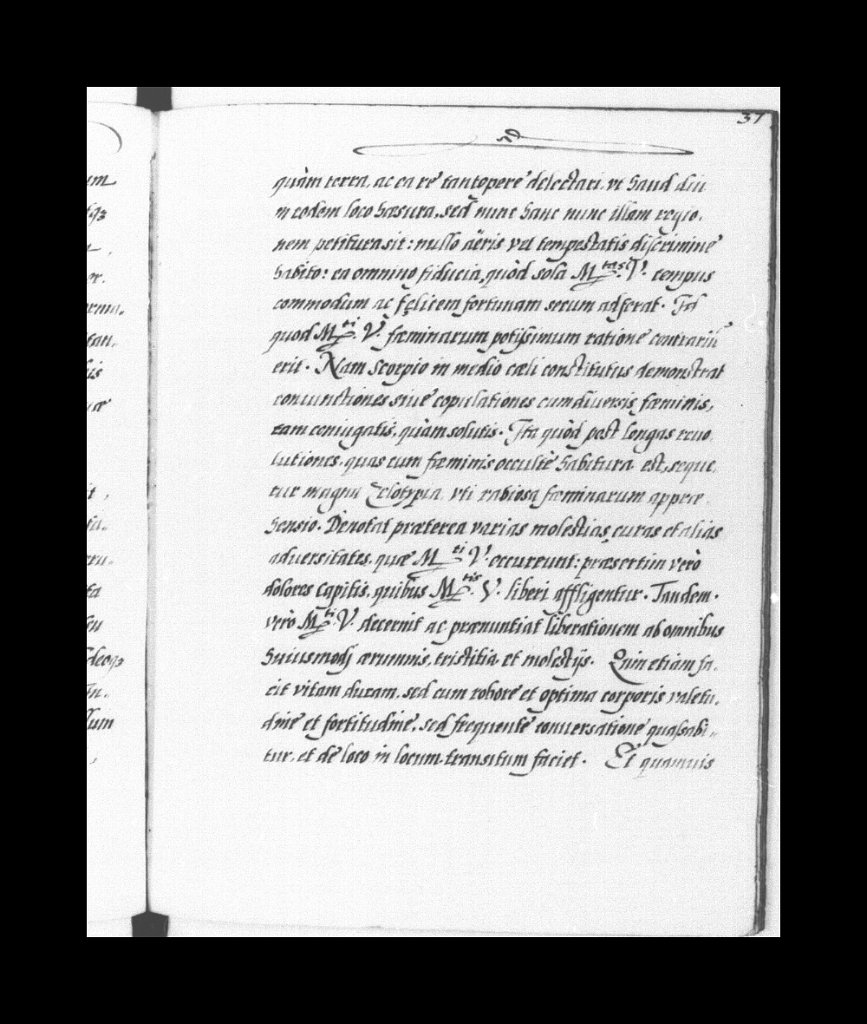 37
quàm terra, ac ea re tantopere delectari, vt haud diu
in eodem loco hæsura, sed nunc hanc nunc illam regio,
nem petitura sit: nullo aëris vel tempestatis discrimine
habito: ea omnino fiducia, quòd sola M.tas V. tempus
commodum ac felicem fortunam secum adferat. Id
quod M.ti V. fæminarum potissimum ratione contrariū
erit. Nam Scorpio in medio cæli constitutus demonstrat
coniunctiones siue copulationes cum diuersis fæminis,
tam coniugatis, quàm solutis. Ita quòd post longas reuo,
lutiones, quas cum fæminis occultè habitura est, seque,
tur magna Zelotypia, vti rabiosa fæminarum appræ,
hensio. Denotat præterea varias molestias, curas et alias
aduersitates, quæ M.ti V. occurrunt: præsertim verò
dolores capitis, quibus M.tis V. liberi affligentur. Tandem.
verò M.ti V. decernit ac prænuntiat liberationem ab omnibus
huiusmodj ærumnis, tristitia et molestijs. Quin etiam fa,
cit vitam duram, sed cum robore et optima corporis valetu,
dine et fortitudine, sed frequente conuersatione quassabi,,
tur, et de loco in locum transitum faciet. Et quamuis
um
tqȝ
or.
orma,
tan,
his
uæ
it,
ta
llum